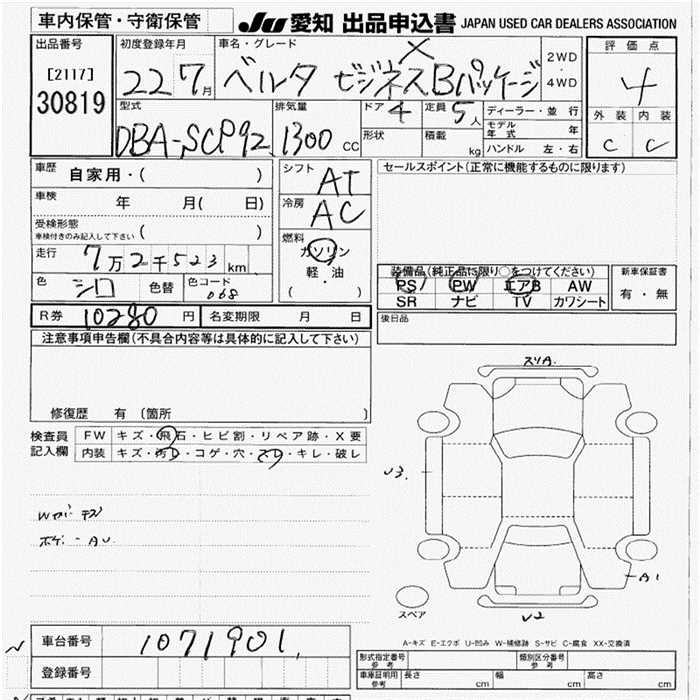 車内保管・守衛保管 JU 愛知 出品申込書 JAPAN USED CAR DEALERS ASSOCIATION
出品番号 初度登録年月 車名・グレード 評価点
[2117] 22 7月 ベルタ X ビジネスBパッケージ 2WD 4WD 4
30819
型式 排気量 ドア 4 定員 5人 ディーラー・並行 外装 内装
DBA-SCP92 1300 CC 形状 積載 kg モデル年式 年 C C
ハンドル 左・右
車歴 自家用・( ) シフト AT セールスポイント(正常に機能するものに限ります)
車検 年 月( 日) 冷房 AC
受検形態 ( )
車検付きのみ記入して下さい
走行 7万2千523km 燃料 ガソリン 軽・油 ( )
色 シロ 色替 色コード 068
装備品(純正品に限り○をつけてください) 新車保証書
PS PW エアB AW 有・無
SR ナビ TV カワシート
R券 10280円 名変期限 月 日 後日品
注意事項申告欄(不具合内容等は具体的に記入して下さい)
修復歴 有 (箇所 )
検査員 FW キズ・飛石・ヒビ割・リペア跡・X要
記入欄 内装 キズ・汚レ・コゲ・穴・スレ・キレ・破レ
スリA.
U3.
A1
U2
スペア
A-キズ E-エクボ U-凹み W-補修跡 S-サビ C-腐食 XX-交換済
車台番号 1071901
登録番号
形式指定番号 参考 類別区分番号 参考
車庫証明用 参考 長さ cm 幅 cm 高さ cm